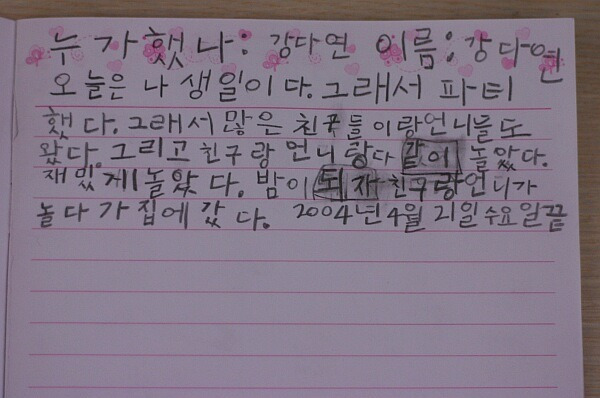 누가했나: 강다연 이름: 강다연
오늘은 나 생일이다. 그래서 파티
했다. 그래서 많은 친구들이랑언니들도
왔다. 그리고 친구랑 언니랑다 같이 놀았다.
재밌게놀았다. 밤이 되자 친구랑언니가
놀다가집에갔다. 2004년 4월 21일 수요일끝